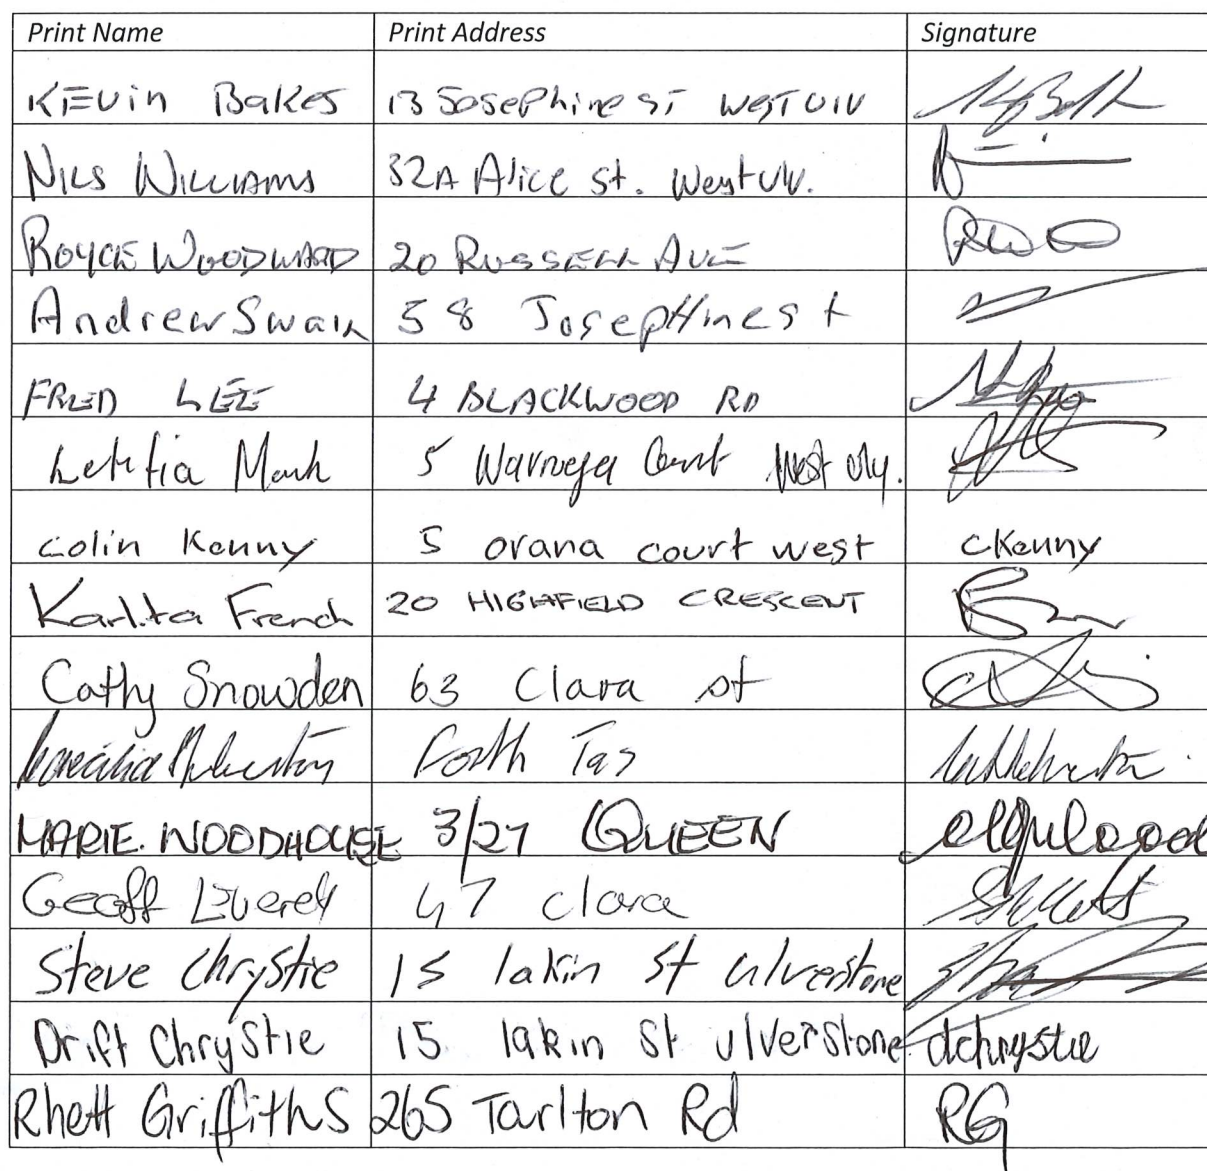 Print Name Print Address Signature
KEVin BaKes 13 Josephine ST WEST ULV
NILS WILLIAMS 32A Alice St. West Ulv.
ROYCE WOODWARD 20 RUSSELL AVE
Andrew Swain 58 JosepHine st
FRED LEE 4 BLACKWOOD RD
Letitia Mark 5 Court West Ulv.
Colin Kenny 5 orana court west cKenny
Karlita French 20 HIGHFIELD CRESCENT
Cathy Snowden 63 Clara st
Forth Tas
MARIE. WOODHOUSE 3/27 QUEEN
Geoff 47 clara
Steve Chrystie 15 lakin St ulverstone
Drift Chrystie 15 lakin St ulverstone dchrystie
Rhett Griffiths 265 Tarlton Rd RG